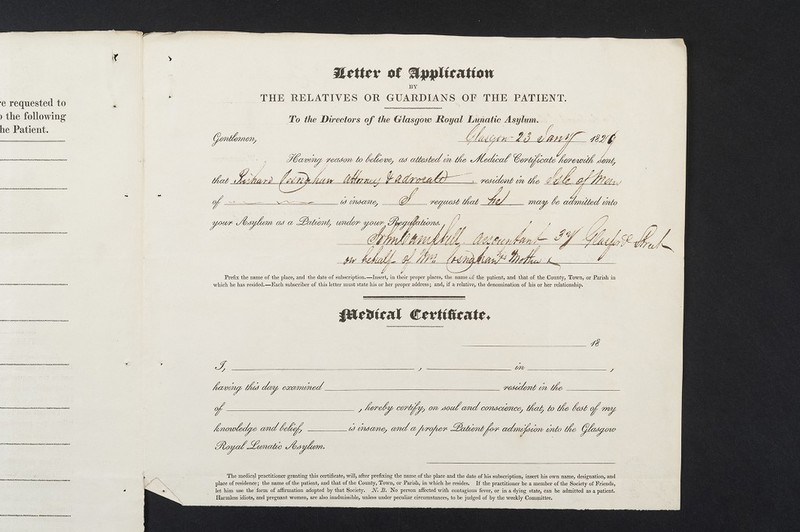 re requested to
o the following
he Patient.
Letter of Application
BY
THE RELATIVES OR GUARDIANS OF THE PATIENT.
To the Directors of the Glasgow Royal Lunatic Asylum.
Gentlemen,
Glasgow 23 Jany 182
Having reason to believe, as attested in the Medical Certificate herewith sent,
that Richard attorney & advocate, resident in the Isle of Man
of is insane, I request that he may be admitted into
your Asylum as a Patient, under your Regulations.
John Campbell accountant 37 Street
on behalf of Mr. Mother
Prefix the name of the place, and the date of subscription.—Insert, in their proper places, the name of the patient, and that of the County, Town, or Parish in
which he has resided.—Each subscriber of this letter must state his or her proper address; and, if a relative, the denomination of his or her relationship.
Medical Certificate.
18
I, , in ,
having this day examined resident in the
of , hereby certify, on soul and conscience, that, to the best of my
knowledge and belief, is insane, and a proper Patient for admission into the Glasgow
Royal Lunatic Asylum.
The medical practitioner granting this certificate, will, after prefixing the name of the place and the date of his subscription, insert his own name, designation, and
place of residence; the name of the patient, and that of the County, Town, or Parish, in which he resides. If the practitioner be a member of the Society of Friends,
let him use the form of affirmation adopted by that Society. N. B. No person affected with contagious fever, or in a dying state, can be admitted as a patient.
Harmless idiots, and pregnant women, are also inadmissible, unless under peculiar circumstances, to be judged of by the weekly Committee.